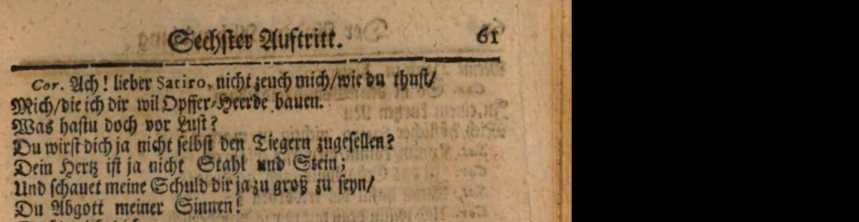 Sechster Auftritt. 61
Cor. Ach! lieber Satiro, nicht zeuch mich/wie du thust/
Mich/die ich dir wil Opffer-Heerde bauen.
Was hastu doch vor Lust?
Du wirst dich ja nicht selbst den Tiegern zugesellen?
Dein Hertz ist ja nicht Stahl und Stein;
Und schauet meine Schuld dir ja zu groß zu seyn/
Du Abgott meiner Sinnen!